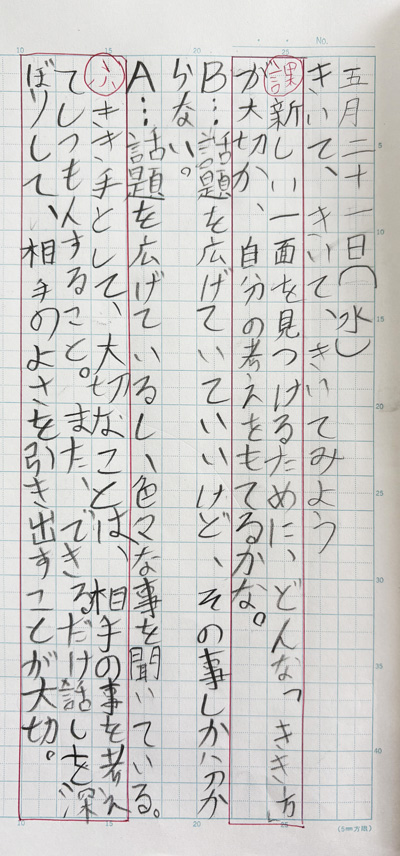 No.
五月二十一日(水)
きいて、きいて、きいてみよう
課 新しい一面を見つけるために、どんな「きき方」
が大切か、自分の考えをもてるかな。
B…話題を広げていていいけど、その事しか分か
らない。
A…話題を広げているし、色々な事を聞いている。
ふ きき手として、大切なことは、相手の事を考え
てしつもんすること。また、できるだけ話しを深
ぼりして、相手のよさを引き出すことが大切。
5
10
15
20
25
30
35
40
10
15
20
25
10
15
20
25
(5mm方眼)